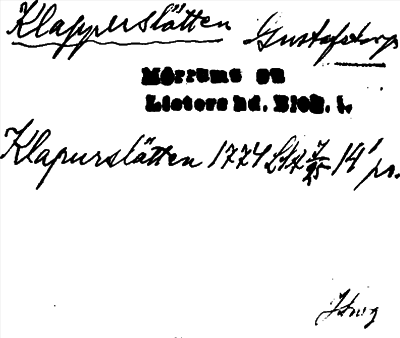 Klapperslätten Gustafstorp
Mörrums sn
Listers hd. Blek. l.
Klapurslätten 1774 14 ps.